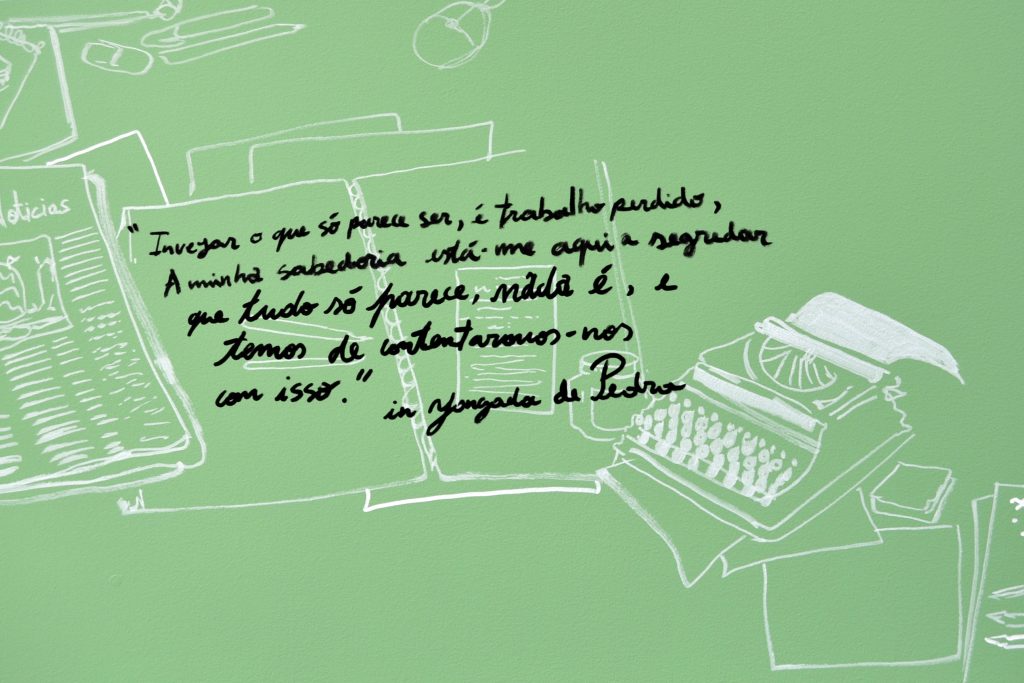 Noticias
"Invejar o que só parece ser, é trabalho perdido,
A minha sabedoria está-me aqui a segredar
que tudo só parece, nada é, e
temos de contentarmos-nos
com isso."
in Jangada de Pedra